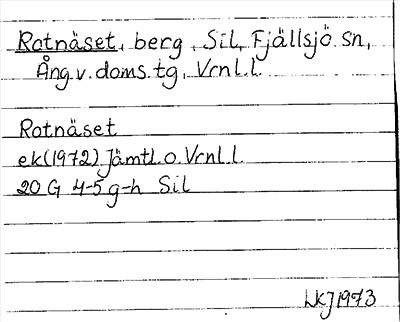 Rotnäset, berg, Sil, Fjällsjö sn,
Ång.v.doms.tg, Vrnl.l.
Rotnäset
ek(1972) Jämtl.o.Vrnl.l.
20 G 4-5 g-h Sil
LKJ 1973